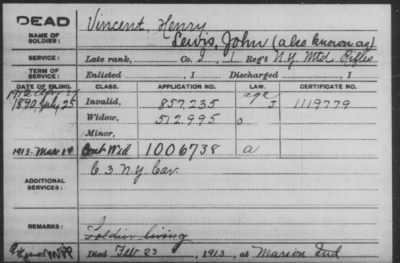 DEAD
NAME OF SOLDIER:
Vincent, Henry
Lewis, John (also known as)
SERVICE: Late rank, Co. I, 1 Reg't N.Y. Mtd. Rifles
Enlisted , 1 Discharged , 1
DATE OF FILING. CLASS. APPLICATION NO. LAW. CERTIFICATE NO.
1890, July 25 Invalid, 857,235 J 1119779
Widow, 512,995 o
Minor,
1913-Mar 19 Cont Wid 1006738 a
ADDITIONAL SERVICES:
C 3 N.Y. Cav.
REMARKS:
Soldier living
Died Feb 23, 1913, at Marion Ind